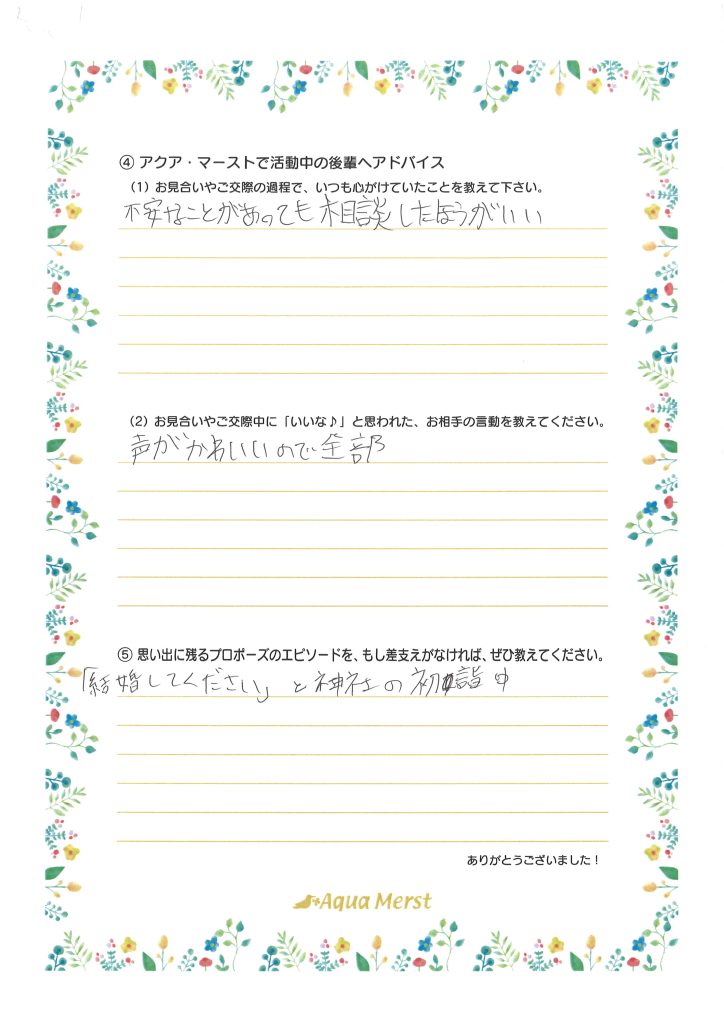 ④ アクア・マーストで活動中の後輩へアドバイス
（1）お見合いやご交際の過程で、いつも心がけていたことを教えて下さい。
不安なことがあっても相談したほうがいい
（2）お見合いやご交際中に「いいな♪」と思われた、お相手の言動を教えてください。
声がかわいいので全部
⑤ 思い出に残るプロポーズのエピソードを、もし差支えがなければ、ぜひ教えてください。
「結婚してください」と神社の初詣中
ありがとうございました！
Aqua Merst